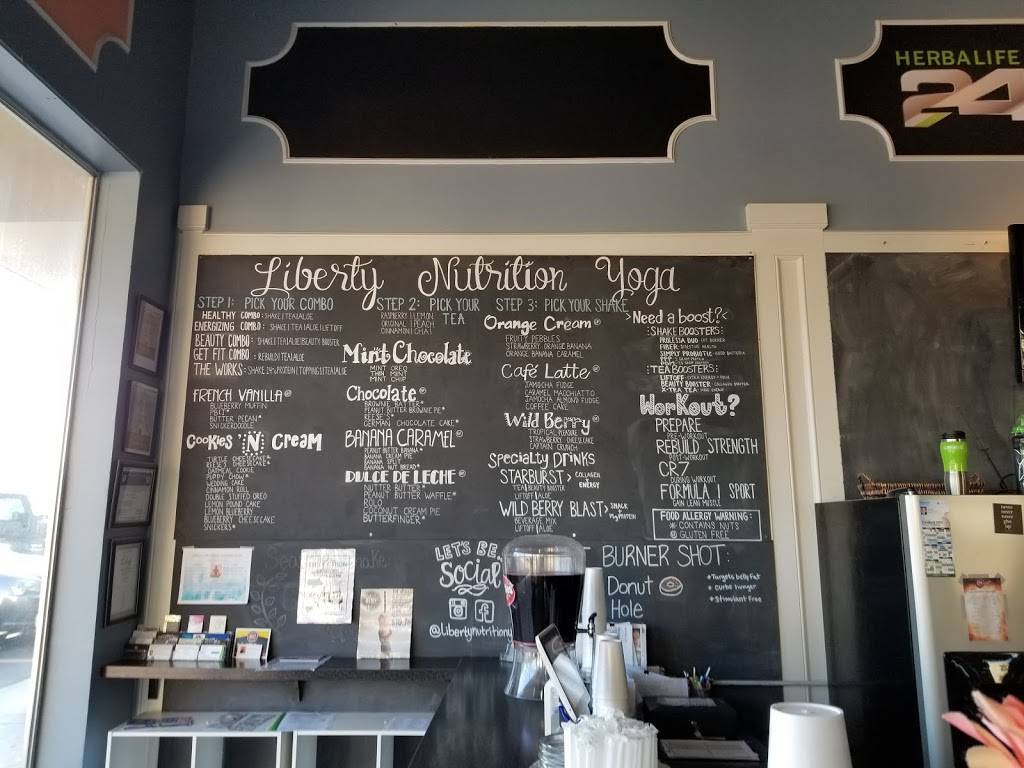 HERBALIFE
24
Liberty Nutrition Yoga
STEP 1: PICK YOUR COMBO
HEALTHY COMBO: SHAKE|TEA|ALOE
ENERGIZING COMBO: SHAKE|TEA|ALOE|LIFTOFF
BEAUTY COMBO: SHAKE|TEA|ALOE|BEAUTY BOOSTER
GET FIT COMBO: REBUILD|TEA|ALOE
THE WORKS: SHAKE 24g PROTEIN|TOPPING|TEA|ALOE
FRENCH VANILLA
BLUEBERRY MUFFIN
BUTTER PECAN*
SNICKERDOODLE
COOKIES 'N' CREAM
TURTLE CHEESECAKE*
REESE'S CHEESECAKE*
OATMEAL COOKIE
PUPPY CHOW*
WEDDING CAKE
CINNAMON ROLL
DOUBLE STUFFED OREO
LEMON POUND CAKE
LEMON BLUEBERRY
BLUEBERRY CHEESECAKE
SNICKERS*
STEP 2: PICK YOUR TEA
RASPBERRY|LEMON
ORIGINAL|PEACH
CINNAMON|CHAI
Mint Chocolate
MINT OREO
THIN MINT
MINT CHIP
Chocolate
BROWNIE BATTER
PEANUT BUTTER BROWNIE PIE*
REESE'S*
GERMAN CHOCOLATE CAKE*
BANANA CARAMEL
PEANUT BUTTER BANANA*
BANANA CREAM PIE
BANANA SPLIT
BANANA NUT BREAD*
DULCE DE LECHE
NUTTER BUTTER*
PEANUT BUTTER WAFFLE*
ROLO
COCONUT CREAM PIE
BUTTERFINGER*
STEP 3: PICK YOUR SHAKE
Orange Cream
FRUITY PEBBLES
STRAWBERRY ORANGE BANANA
ORANGE BANANA CARAMEL
Café Latte
JAMOCHA FUDGE
CARAMEL MACCHIATTO
JAMOCHA ALMOND FUDGE
COFFEE CAKE
Wild Berry
TROPICAL PLEASURE
STRAWBERRY CHEESECAKE
CAPTAIN CRUNCH
Specialty Drinks
STARBURST> COLLAGEN + ENERGY
TEA|BEAUTY BOOSTER
LIFTOFF|ALOE
WILD BERRY BLAST> SNACK + 15g PROTEIN
BEVERAGE MIX
LIFTOFF|ALOE
>Need a boost?<
SHAKE BOOSTERS:
PROLESSA DUO FAT BURNER
FIBER: DIGESTIVE HEALTH
SIMPLY PROBIOTIC GOOD BACTERIA
TEA BOOSTERS:
LIFTOFF
BEAUTY BOOSTER COLLAGEN BOOSTER
X-TRA TEA
Workout?
PREPARE
PRE-WORKOUT
REBUILD STRENGTH
POST-WORKOUT
CR7
DURING WORKOUT
FORMULA 1 SPORT
GAIN LEAN MUSCLE
FOOD ALLERGY WARNING:
* CONTAINS NUTS
GLUTEN FREE
LET'S BE
Social
@libertynutritiony
BURNER SHOT:
Donut Hole
*Targets belly fat
*Curbs hunger
*Stimulant Free